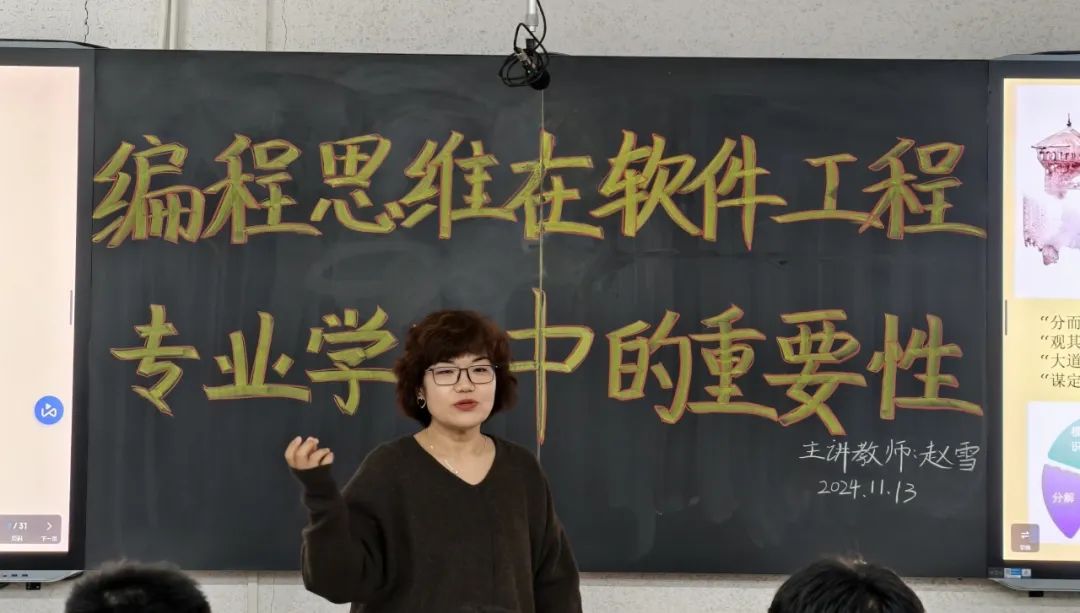 编程思维在软件工程
专业学 中的重要性
主讲教师:赵雪
2024.11.13
/ 31
页码
下一页
“分而
“观其
“大道
“谋定
分解